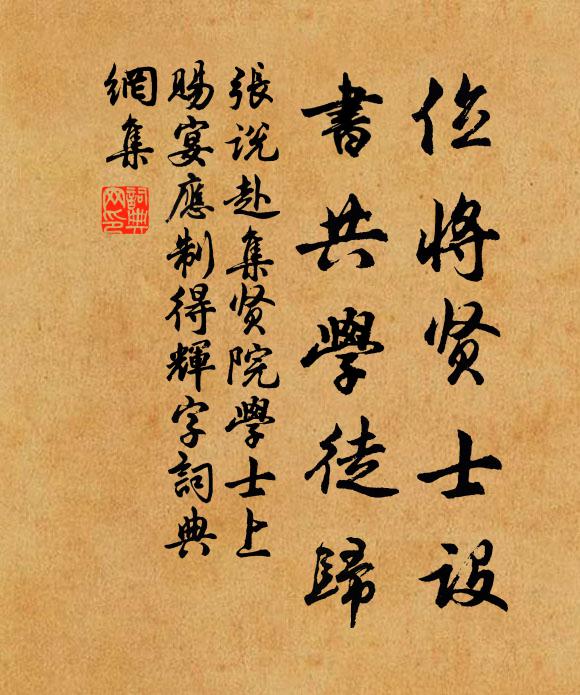 位將贤士設
書共學徒歸
張説赴集贤院學士上
賜宴應制得輝字詞典
網集
詞典網印